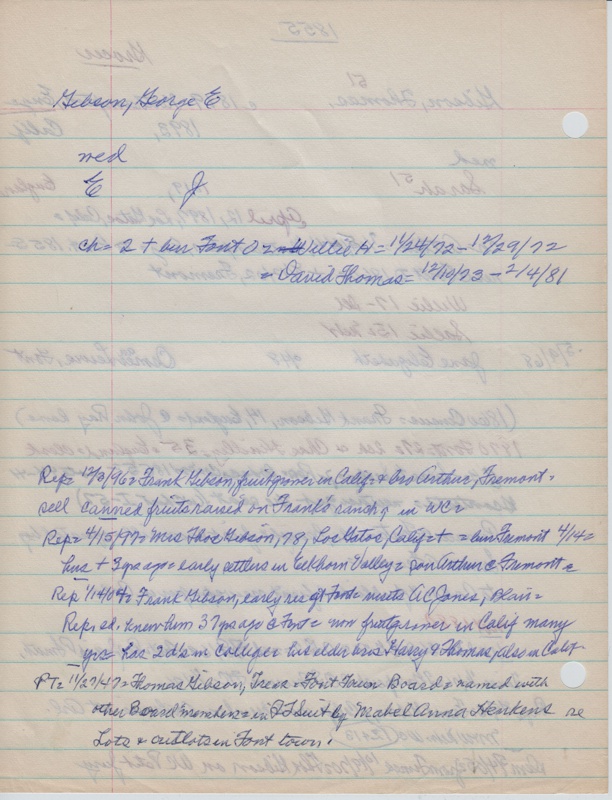 Gibson, George E
med
E J
ch = 2 + bur Font O = Willie H = 1/24/72 - 12/29/72
= David Thomas = 12/10/73 - 2/4/81
Rep = 12/3/96 = Frank Gibson, fruitgrower in Calif. + bro Arthur, Fremont =
sell canned fruits raised on Frank's ranch, in WC =
Rep = 4/15/97 = Mrs Thos Gibson, 78, Los Gatos, Calif = + = bur Fremont 4/14 =
hus + 3 yr ago = early settlers in Elkhorn Valley = son Arthur @ Fremont =
Rep 1/14/04 = Frank Gibson, early res of Font = visits A C Jones, Blair =
Rep. ed. knew him 37 yr ago @ Font = now fruitgrower in Calif many
yrs = has 2 d's in college = his elder bros Harry & Thomas, also in Calif -
PT = 11/27/47 = Thomas Gibson, Treas = Font Town Board = named with
other Board members = in Suit by Mabel Anna Henkens re
Lots & outlots in Font town.